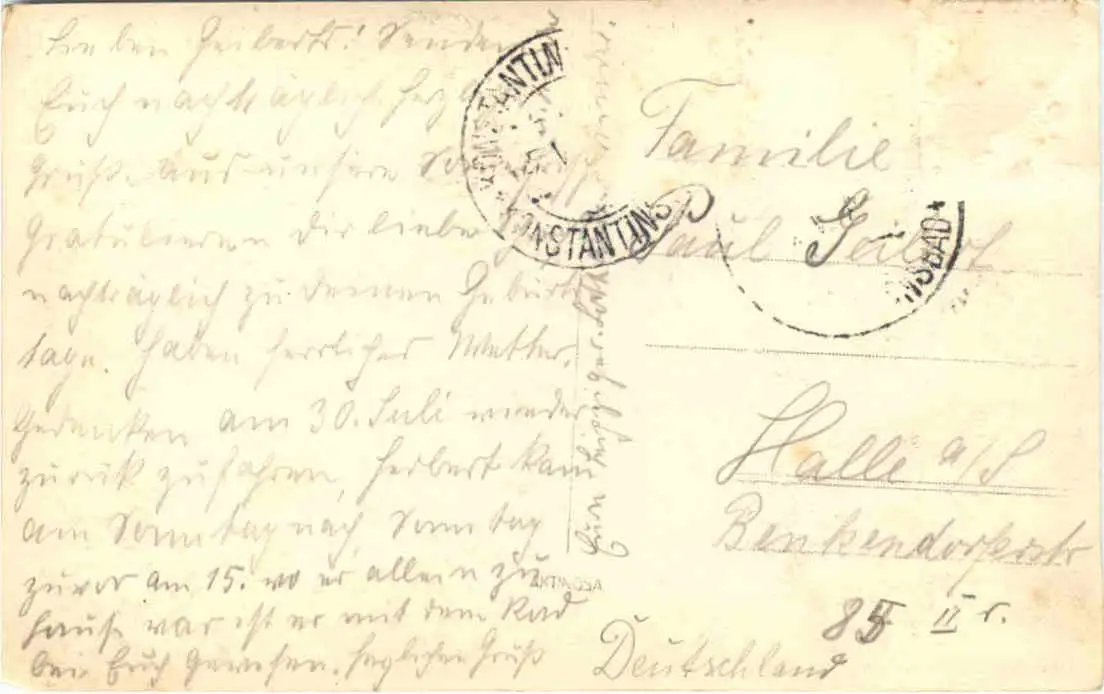 Lieben Geiberts! Senden
Euch nachträglich herzl
Grüße aus unsere
Gratulieren Dir liebe
nachträglich zu deinen Geburts
tage. Haben herrliches Wetter.
Gedenken am 30. Juli wieder
zurück zu fahren, Herbert kam
am Sonntag nach, Sonntag
zuvor am 15. wo er allein zu
Hause war ist er mit dem Rad
bei Euch gewesen. Herzlichen Gruß
KONSTANTIN
KONSTANTINS
NSBAD
Familie
Paul
Halle a/S
Benkendorfstr
85 II r.
Deutschland